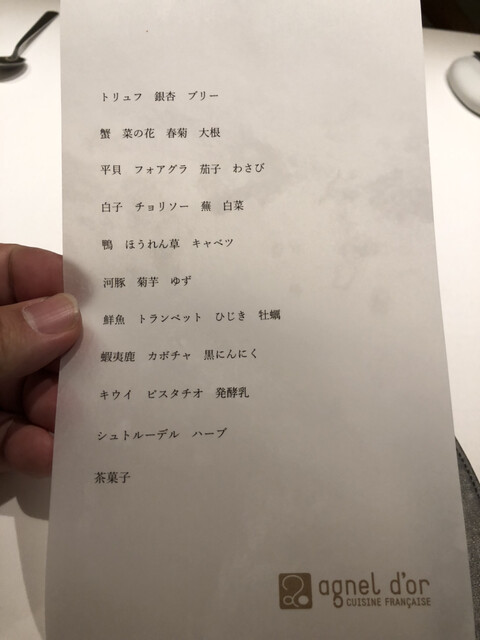 トリュフ 銀杏 ブリー
蟹 菜の花 春菊 大根
平貝 フォアグラ 茄子 わさび
白子 チョリソー 蕪 白菜
鴨 ほうれん草 キャベツ
河豚 菊芋 ゆず
鮮魚 トランペット ひじき 牡蠣
蝦夷鹿 カボチャ 黒にんにく
キウイ ピスタチオ 発酵乳
シュトルーデル ハーブ
茶菓子
agnel d'or
CUISINE FRANÇAISE